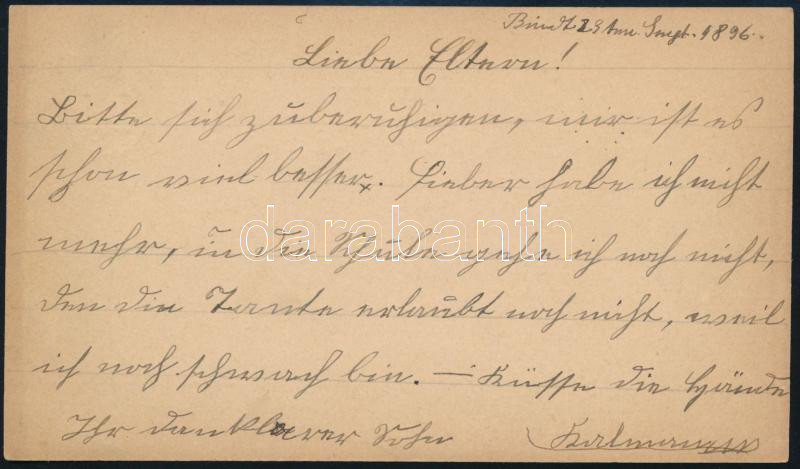 Bindt 23ten Sept. 1896.
Liebe Eltern!
Bitte sich zuberuhigen, mir ist es
schon viel besser. Fieber habe ich nicht
mehr, in die Schule gehe ich noch nicht,
den die Tante erlaubt noch nicht, weil
ich noch schwach bin. — Küsse die Hände
Ihr dankbarer Sohn Kalman
darabanth